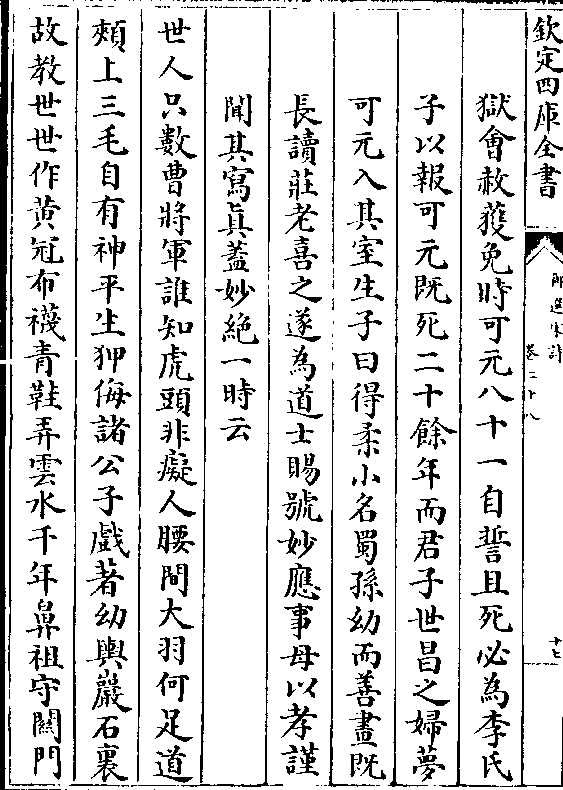 欽定四庫全書
御選宋詩
卷二十八
十七
獄會赦獲免時可元八十一自誓且死必為李氏
子以報可元既死二十餘年而君子世昌之婦夢
可元入其室生子曰得柔小名蜀孫幼而善畫既
長讀莊老喜之遂為道士賜號妙應事母以孝謹
聞其寫真蓋妙絶一時云
世人只數曹將軍誰知虎頭非癡人腰間大羽何足道
頰上三毛自有神平生狎侮諸公子戲著幼輿巖石裏
故教世世作黄冠布襪青鞋弄雲水千年鼻祖守關門